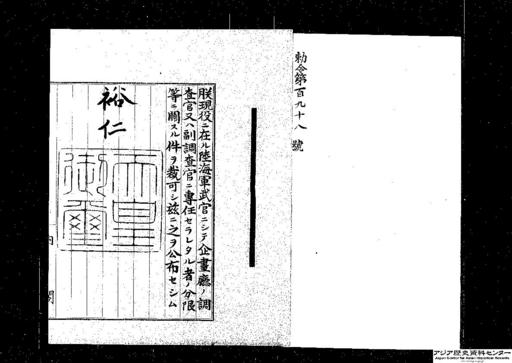 勅令第百九十八號
朕現役ニ在ル陸海軍武官ニシテ企畫廳ノ調
査官又ハ副調査官ニ專任セラレタル者ノ分限
等ニ關スル件ヲ裁可シ茲ニ之ヲ公布セシム
裕仁
天皇
御璽
内閣
アジア歴史資料センター
Japan Center for Asian Historical Records